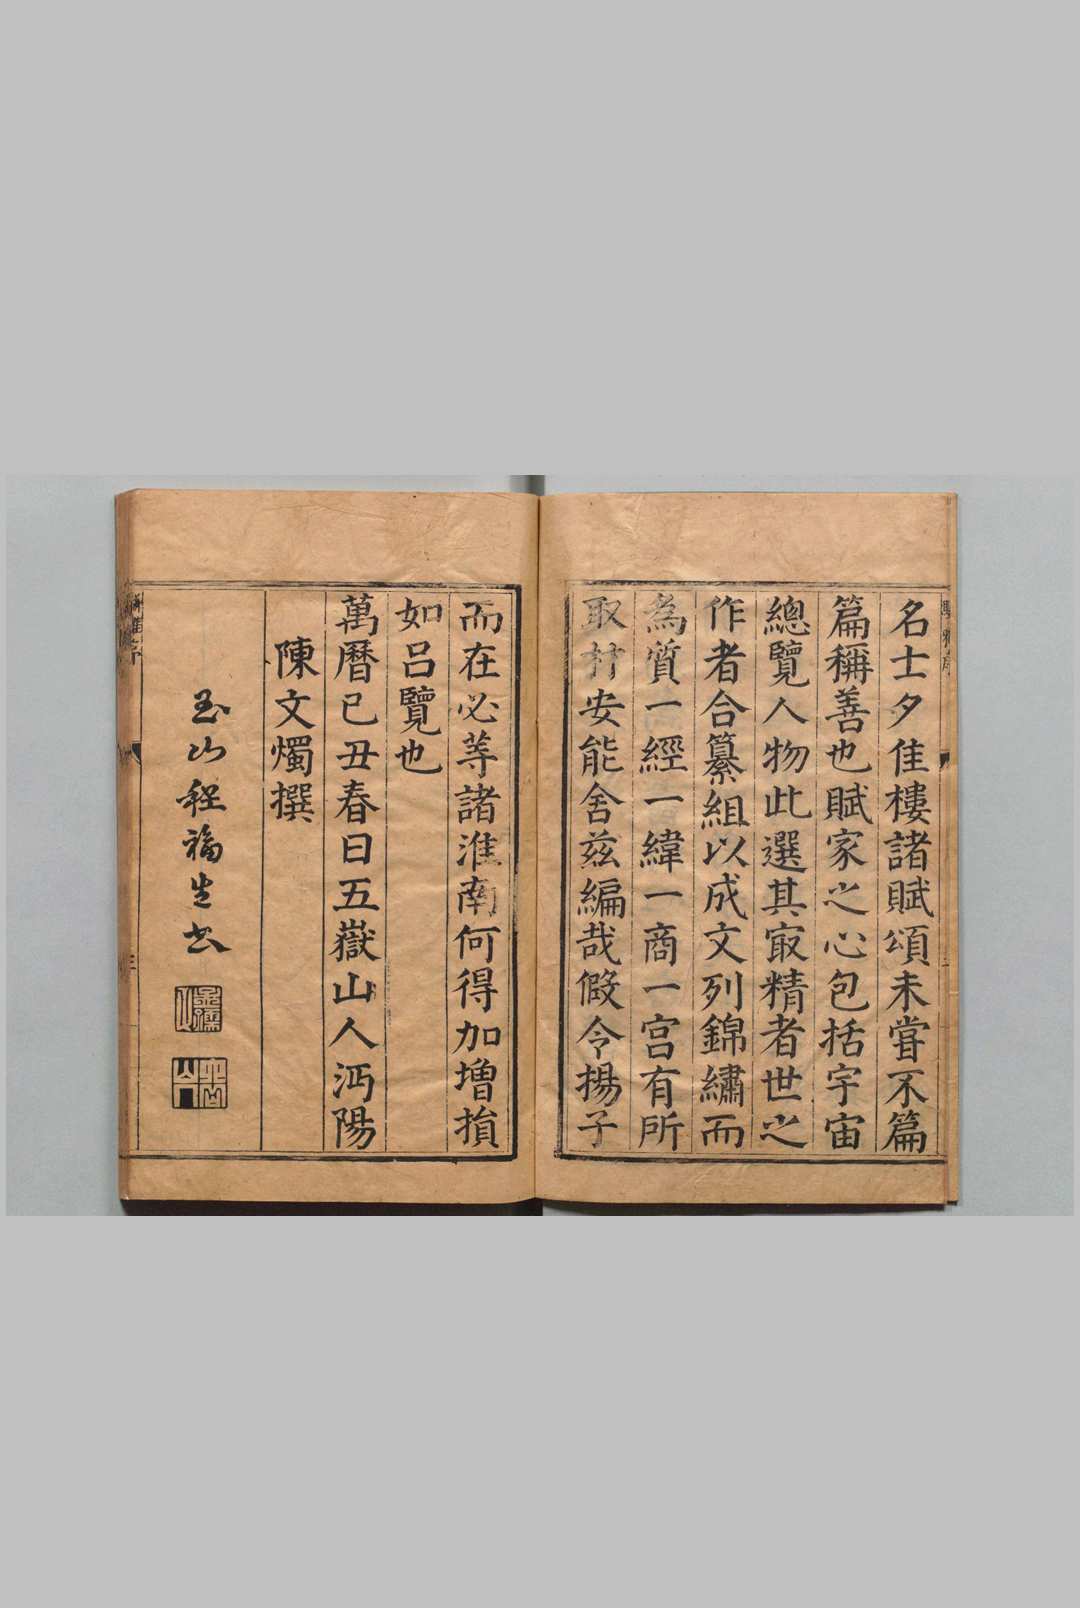 名士夕佳樓諸賦頌未甞不篇
篇稱善也賦家之心包括宇宙
總覽人物此選其㝡精者世之
作者合纂組以成文列錦繡而
為質一經一緯一商一宮有所
取材安能舍茲編哉假令揚子
而在必䓁諸淮南何得加增損
如呂覽也
萬曆己丑春日五嶽山人沔陽
陳文燭撰
玉山程福生書